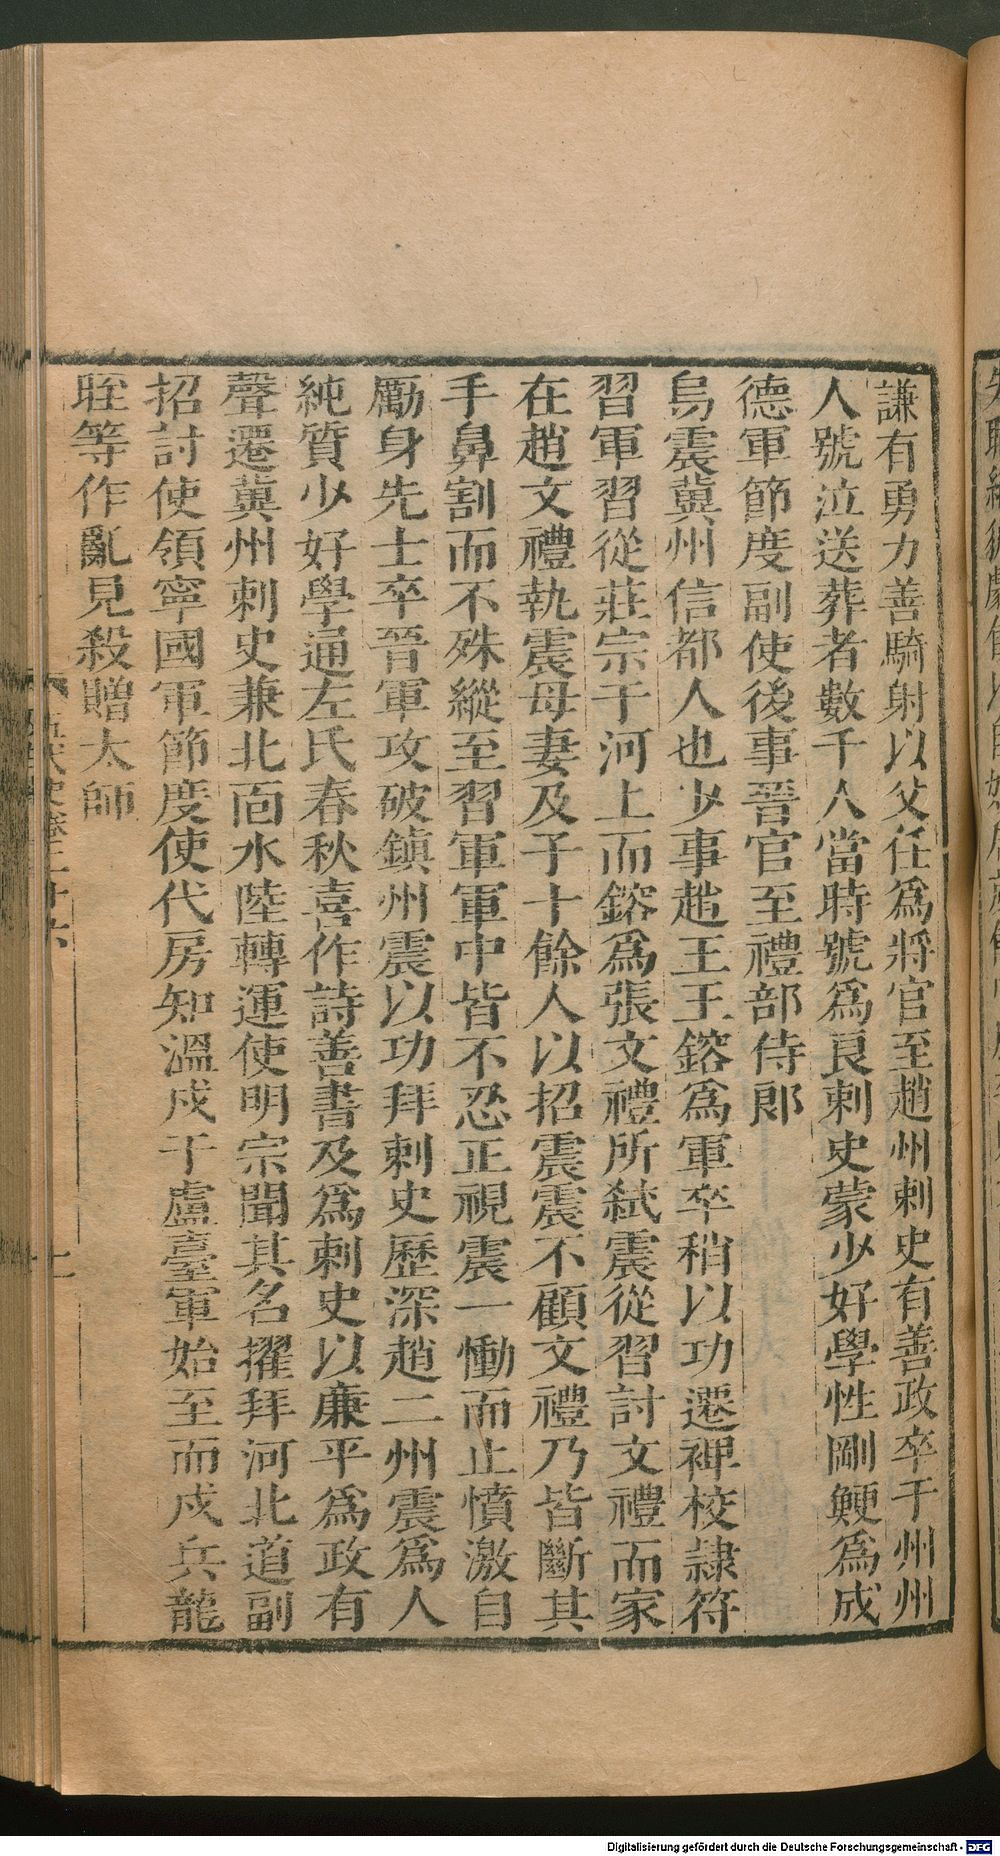 謙有勇力善騎射以父任爲將官至趙州刺史有善政卒于州州
人號泣送葬者數千人當時號爲良刺史蒙少好學性剛鯁爲成
德軍節度副使後事晉官至禮部侍郎
烏震冀州信都人也少事趙王王鎔爲軍卒稍以功遷裨校隷符
習軍習從莊宗于河上而鎔爲張文禮所弑震從習討文禮而家
在趙文禮執震母妻及子十餘人以招震震不顧文禮乃皆斷其
手鼻割而不殊縱至習軍軍中皆不忍正視震一慟而止憤激自
勵身先士卒晉軍攻破鎮州震以功拜刺史歷深趙二州震爲人
純質少好學通左氏春秋喜作詩善書及爲刺史以廉平爲政有
聲遷冀州刺史兼北面水陸轉運使明宗聞其名擢拜河北道副
招討使領寧國軍節度使代房知溫戍于盧臺軍始至而戍兵龍
晊等作亂見殺贈太師
五代史卷二十六
Digitalisierung gefördert durch die Deutsche Forschungsgemeinschaft - DFG